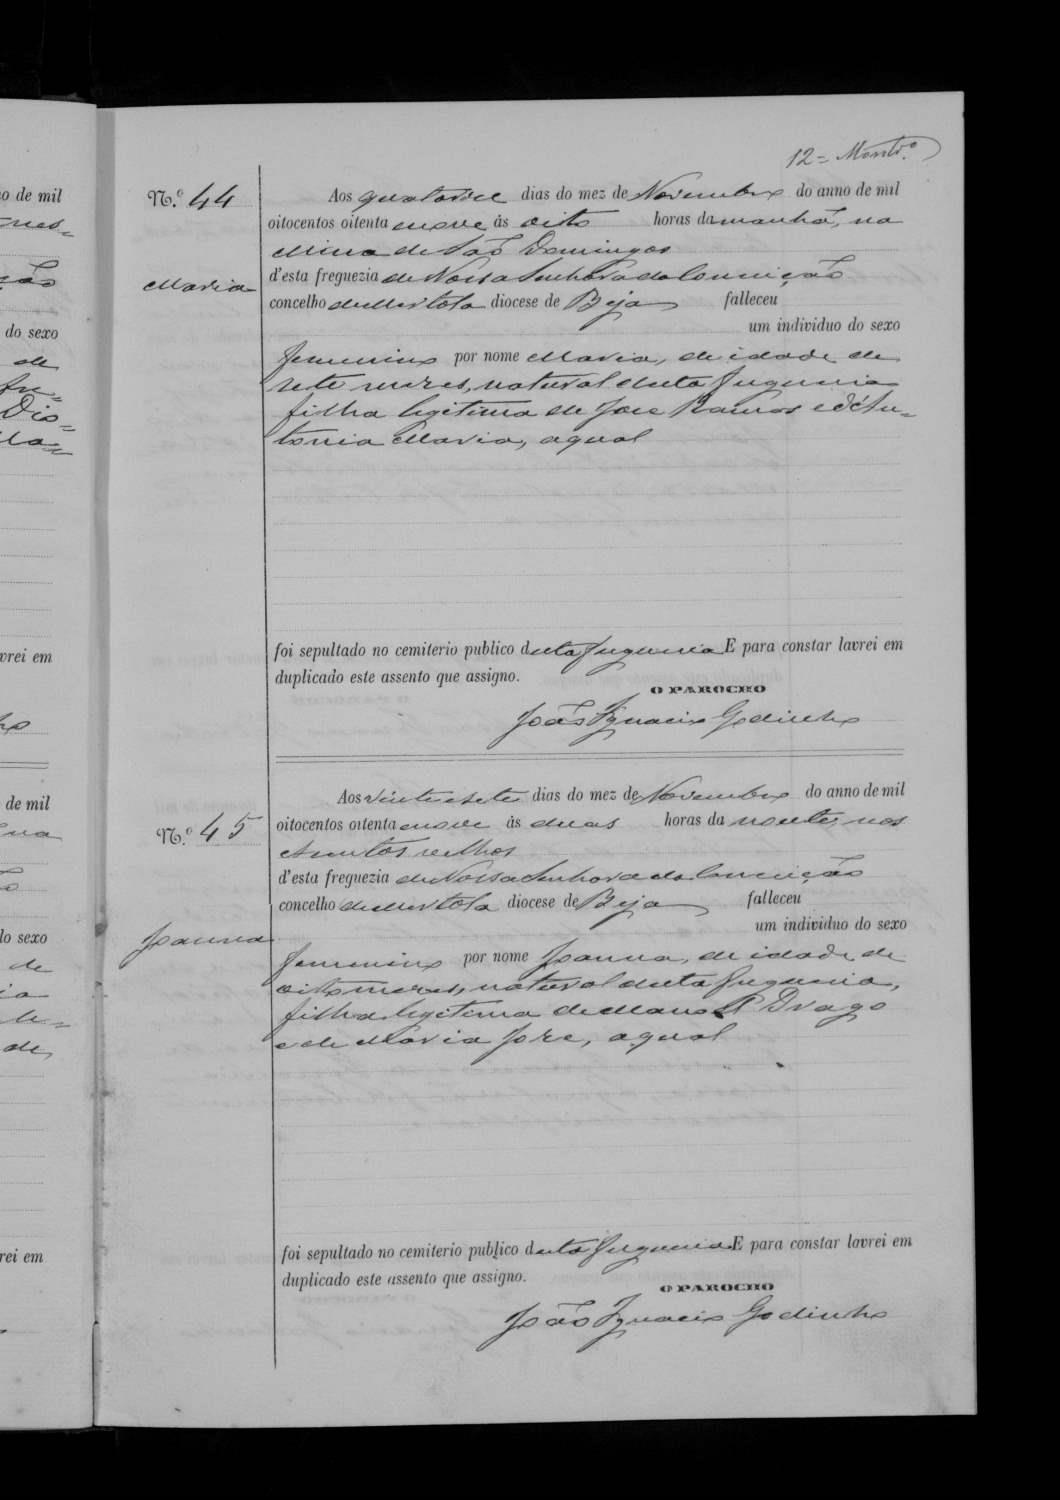 12 = Montr.º
N.º 44
Aos quatorze dias do mez de Novembro do anno de mil
oitocentos oitenta e nove ás oito horas da manhã, na
Mina de São Domingos
Maria
d'esta freguezia de Nossa Senhora da Conceição
concelho de Mertola diocese de Beja falleceu
um individuo do sexo
femenino por nome Maria, de idade de
sete mezes, natural desta freguezia
filha legitima de José Ramos e d'An-
tonia Maria, a qual
foi sepultado no cemiterio publico desta freguezia E para constar lavrei em
duplicado este assento que assigno.
O PAROCHO
João Ignacio Godinho
N.º 45
Aos vinte e sete dias do mez de Novembro do anno de mil
oitocentos oitenta e nove ás duas horas da noute, nos
velhos
d'esta freguezia de Nossa Senhora da Conceição
concelho de Mertola diocese de Beja falleceu
um individuo do sexo
Joanna
femenino por nome Joanna, de idade de
oito mezes, natural desta freguezia,
filha legitima de Manoel Drago
e de Maria José, a qual
foi sepultado no cemiterio publico desta freguezia E para constar lavrei em
duplicado este assento que assigno.
O PAROCHO
João Ignacio Godinho
o de mil
do sexo
de
Dio=
vrei em
de mil
do sexo
de
de
rei em